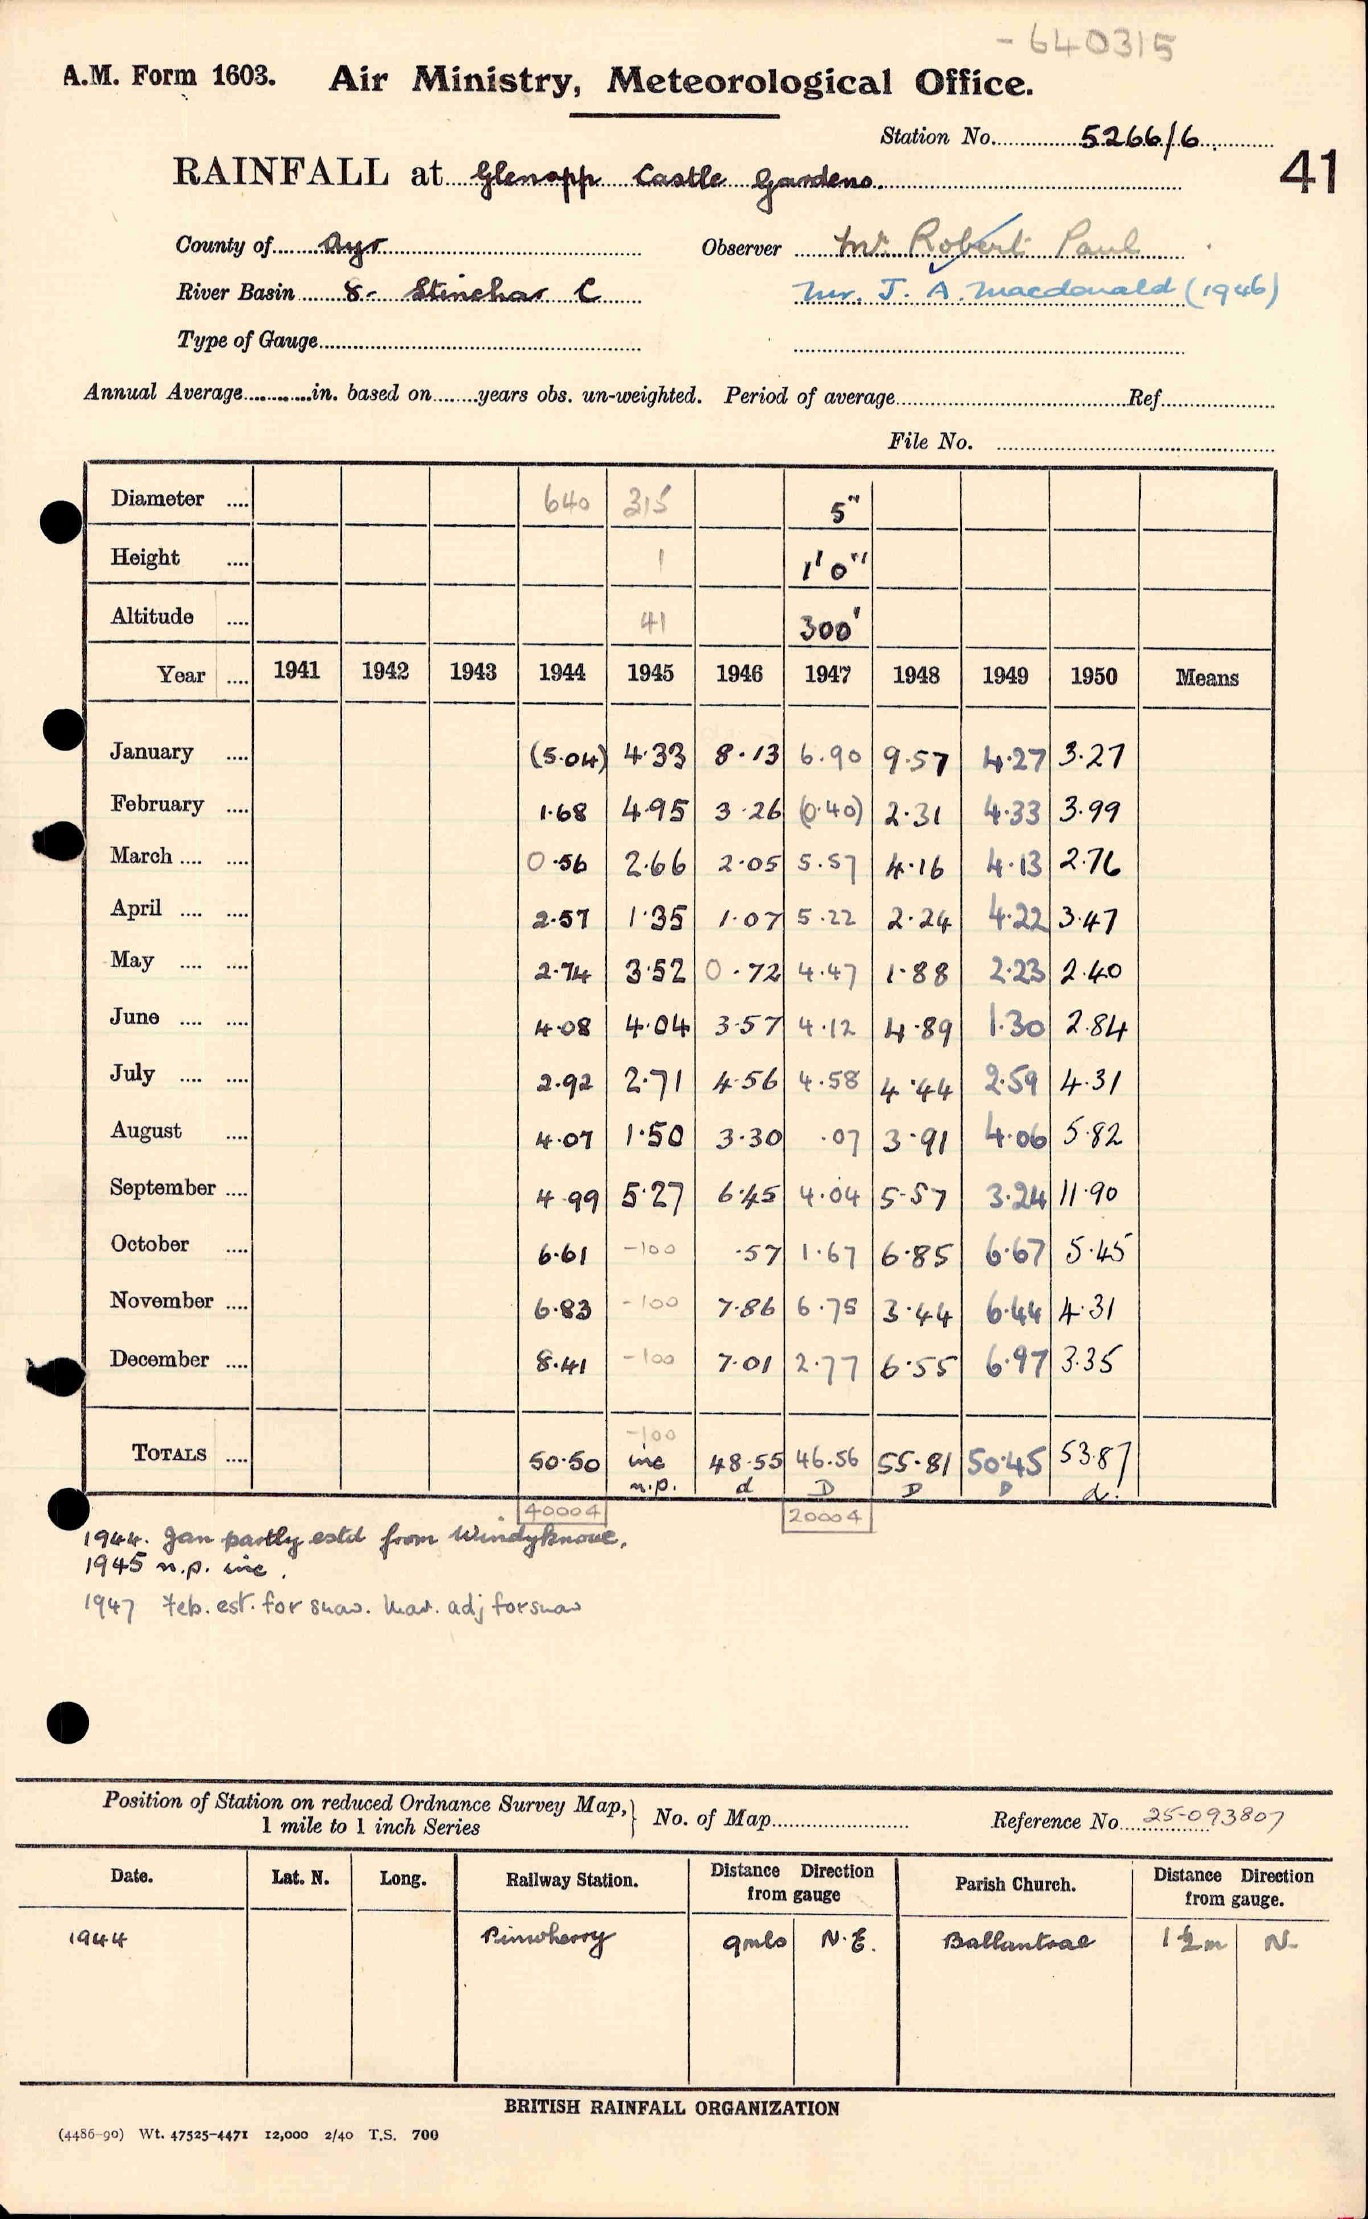 -640315
A.M. Form 1603. Air Ministry, Meteorological Office.
Station No. 5266/6
RAINFALL at Glenapp Castle Gardens. 41
County of Ayr Observer Mr Robert Paul
River Basin 8. Stinchar C Mr. J. A. Macdonald (1946)
Type of Gauge
Annual Average in. based on years obs. un-weighted. Period of average Ref.
File No.
Diameter .... 640 315 5"
Height .... 1 1' 0"
Altitude .... 41 300'
Year .... 1941 1942 1943 1944 1945 1946 1947 1948 1949 1950 Means
January .... (5.04) 4.33 8.13 6.90 9.57 4.27 3.27
February .... 1.68 4.95 3.26 (0.40) 2.31 4.33 3.99
March .... .... 0.56 2.66 2.05 5.57 4.16 4.13 2.76
April .... .... 2.57 1.35 1.07 5.22 2.24 4.22 3.47
May .... .... 2.74 3.52 0.72 4.47 1.88 2.23 2.40
June .... .... 4.08 4.04 3.57 4.12 4.89 1.30 2.84
July .... .... 2.92 2.71 4.56 4.58 4.44 2.59 4.31
August .... 4.07 1.50 3.30 .07 3.91 4.06 5.82
September .... 4.99 5.27 6.45 4.04 5.57 3.24 11.90
October .... 6.61 -100 .57 1.67 6.85 6.67 5.45
November .... 6.83 -100 7.86 6.75 3.44 6.44 4.31
December .... 8.41 -100 7.01 2.77 6.55 6.97 3.35
-100
TOTALS .... 50.50 inc 48.55 46.56 55.81 50.45 53.87
n.p. d D D D d.
40004 20004
1944. Jan partly estd from Windyknowe.
1945 n.p. inc.
1947 Feb. est. for snow. Mar. adj for snow
Position of Station on reduced Ordnance Survey Map, 1 mile to 1 inch Series } No. of Map Reference No. 25-093807
Date. Lat. N. Long. Railway Station. Distance Direction from gauge Parish Church. Distance Direction from gauge.
1944 Pinwherry 9mls N.E. Ballantrae 1½m N.
BRITISH RAINFALL ORGANIZATION
(4486-90) Wt. 47525-4471 12,000 2/40 T.S. 700